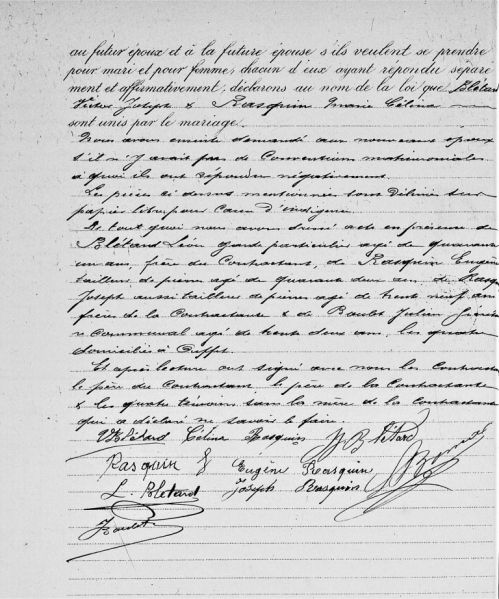 au futur époux et à la future épouse s'ils veulent se prendre
pour mari et pour femme; chacun d'eux ayant répondu séparé
ment et affirmativement; déclarons au nom de la loi que Blétard
Victor Joseph & Rasquin Marie Célina
sont unis par le mariage.
Nous avons ensuite demandé aux nouveaux époux
s'il n'y avait pas de Convention matrimoniales
à quoi ils ont répondu négativement.
Les pièces ci dessus mentionnées sont délivrées sur
papier libre pour Cause d'indigence.
De tout quoi nous avons dressé acte en présence de
Blétard Léon garde particulier agé de quarante
un ans, frère du Contractant, de Rasquin Eugène
tailleur de pierres agé de quarante deux ans, de Rasq
Joseph aussi tailleur de pierres agé de trente neuf ans
frères de la Contractante & de Boulet Julien
Communal agé de trente deux ans, les quatre
domiciliés à
Et après lecture ont signé avec nous les Contracta
le père du Contractant le père de la Contractante
& les quatre témoins sauf la mère de la contractante
qui a déclaré ne savoir le faire
V Blétard Célina Rasquin J B Blétard
Rasquin Eugène Rasquin
L. Blétard Joseph Rasquin